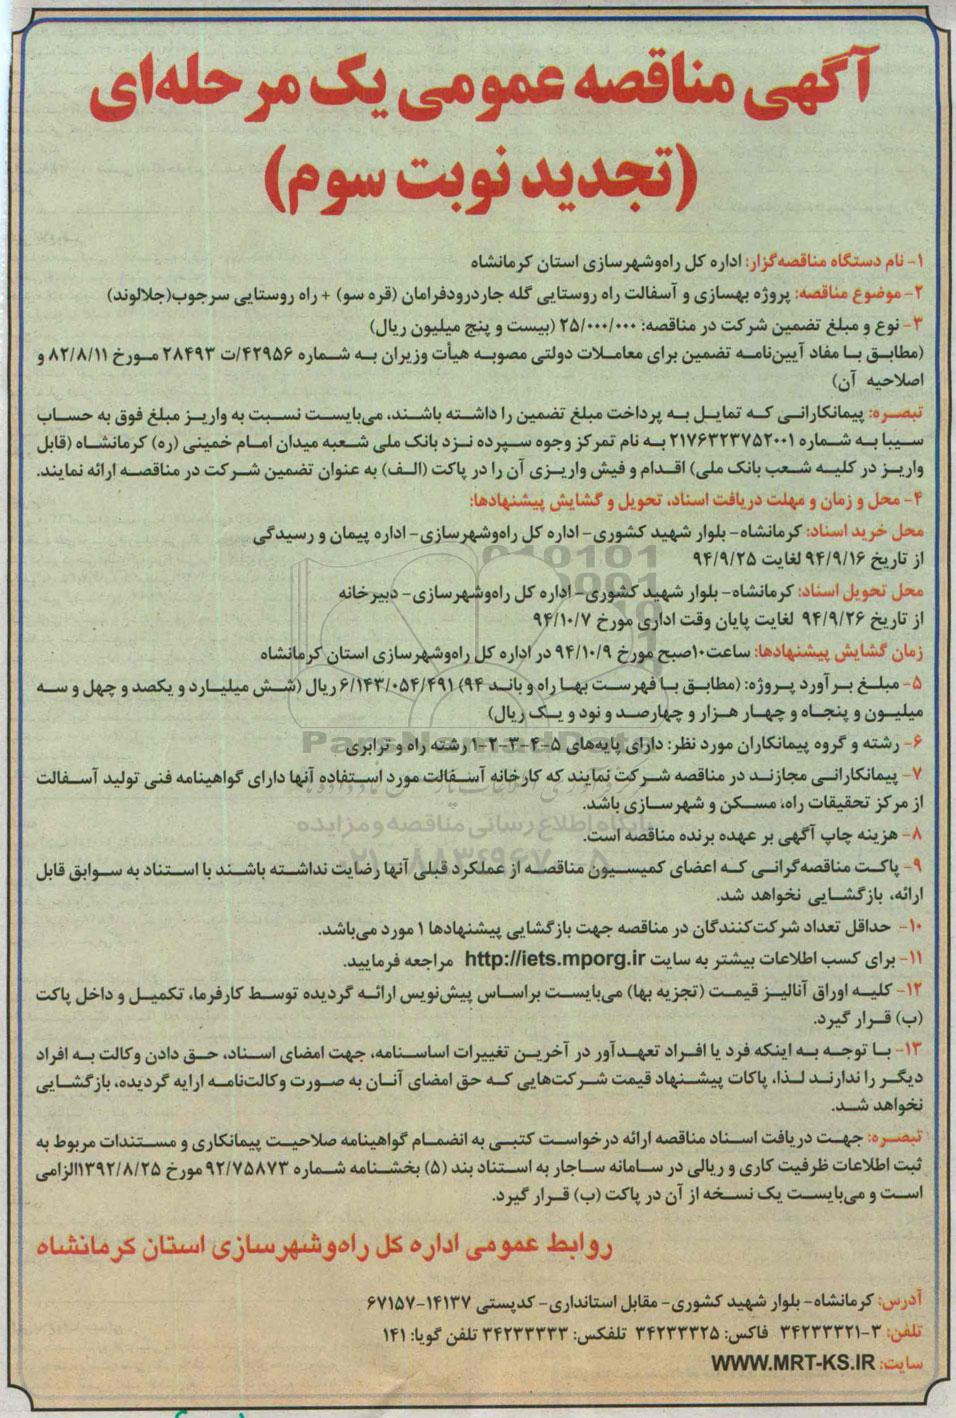 آگهی مناقصه عمومی یک مرحله‌ای
(تجدید نوبت سوم)
۱- نام دستگاه مناقصه‌گزار: اداره کل راه‌وشهرسازی استان کرمانشاه
۲- موضوع مناقصه: پروژه بهسازی و آسفالت راه روستایی گله جاردرودفرامان (قره سو) + راه روستایی سرجوب(جلالوند)
۳- نوع و مبلغ تضمین شرکت در مناقصه: ۲۵/۰۰۰/۰۰۰ (بیست و پنج میلیون ریال)
(مطابق با مفاد آیین‌نامه تضمین برای معاملات دولتی مصوبه هیأت وزیران به شماره ۴۲۹۵۶/ت ۲۸۴۹۳ مورخ ۸۲/۸/۱۱ و
اصلاحیه آن)
تبصره: پیمانکارانی که تمایل به پرداخت مبلغ تضمین را داشته باشند، می‌بایست نسبت به واریز مبلغ فوق به حساب
سیبا به شماره ۲۱۷۶۳۲۳۷۵۲۰۰۱ به نام تمرکز وجوه سپرده نزد بانک ملی شعبه میدان امام خمینی (ره) کرمانشاه (قابل
واریز در کلیه شعب بانک ملی) اقدام و فیش واریزی آن را در پاکت (الف) به عنوان تضمین شرکت در مناقصه ارائه نمایند.
۴- محل و زمان و مهلت دریافت اسناد، تحویل و گشایش پیشنهادها:
محل خرید اسناد: کرمانشاه- بلوار شهید کشوری- اداره کل راه‌وشهرسازی- اداره پیمان و رسیدگی
از تاریخ ۹۴/۹/۱۶ لغایت ۹۴/۹/۲۵
محل تحویل اسناد: کرمانشاه- بلوار شهید کشوری- اداره کل راه‌وشهرسازی- دبیرخانه
از تاریخ ۹۴/۹/۲۶ لغایت پایان وقت اداری مورخ ۹۴/۱۰/۷
زمان گشایش پیشنهادها: ساعت۱۰صبح مورخ ۹۴/۱۰/۹ در اداره کل راه‌وشهرسازی استان کرمانشاه
۵- مبلغ برآورد پروژه: (مطابق با فهرست بها راه و باند ۹۴) ۶/۱۴۳/۰۵۴/۴۹۱ ریال (شش میلیارد و یکصد و چهل و سه
میلیون و پنجاه و چهار هزار و چهارصد و نود و یک ریال)
۶- رشته و گروه پیمانکاران مورد نظر: دارای پایه‌های ۵-۴-۳-۲-۱ رشته راه و ترابری
۷- پیمانکارانی مجازند در مناقصه شرکت نمایند که کارخانه آسفالت مورد استفاده آنها دارای گواهینامه فنی تولید آسفالت
از مرکز تحقیقات راه، مسکن و شهرسازی باشد.
۸- هزینه چاپ آگهی بر عهده برنده مناقصه است.
۹- پاکت مناقصه‌گرانی که اعضای کمیسیون مناقصه از عملکرد قبلی آنها رضایت نداشته باشند با استناد به سوابق قابل
ارائه، بازگشایی نخواهد شد.
۱۰- حداقل تعداد شرکت‌کنندگان در مناقصه جهت بازگشایی پیشنهادها ۱ مورد می‌باشد.
۱۱- برای کسب اطلاعات بیشتر به سایت http://iets.mporg.ir مراجعه فرمایید.
۱۲- کلیه اوراق آنالیز قیمت (تجزیه بها) می‌بایست براساس پیش‌نویس ارائه گردیده توسط کارفرما، تکمیل و داخل پاکت
(ب) قرار گیرد.
۱۳- با توجه به اینکه فرد یا افراد تعهدآور در آخرین تغییرات اساسنامه، جهت امضای اسناد، حق دادن وکالت به افراد
دیگر را ندارند لذا، پاکات پیشنهاد قیمت شرکت‌هایی که حق امضای آنان به صورت وکالت‌نامه ارایه گردیده، بازگشایی
نخواهد شد.
تبصره: جهت دریافت اسناد مناقصه ارائه درخواست کتبی به انضمام گواهینامه صلاحیت پیمانکاری و مستندات مربوط به
ثبت اطلاعات ظرفیت کاری و ریالی در سامانه ساجار به استناد بند (۵) بخشنامه شماره ۹۲/۷۵۸۷۳ مورخ ۱۳۹۲/۸/۲۵الزامی
است و می‌بایست یک نسخه از آن در پاکت (ب) قرار گیرد.
روابط عمومی اداره کل راه‌وشهرسازی استان کرمانشاه
آدرس: کرمانشاه- بلوار شهید کشوری- مقابل استانداری- کدپستی ۱۴۱۳۷-۶۷۱۵۷
تلفن: ۳-۳۴۲۳۳۳۲۱ فاکس: ۳۴۲۳۳۳۲۵ تلفکس: ۳۴۲۳۳۳۳۳ تلفن گویا: ۱۴۱
سایت: WWW.MRT-KS.IR
ParsNamadData
پایگاه اطلاع رسانی مناقصه و مزایده